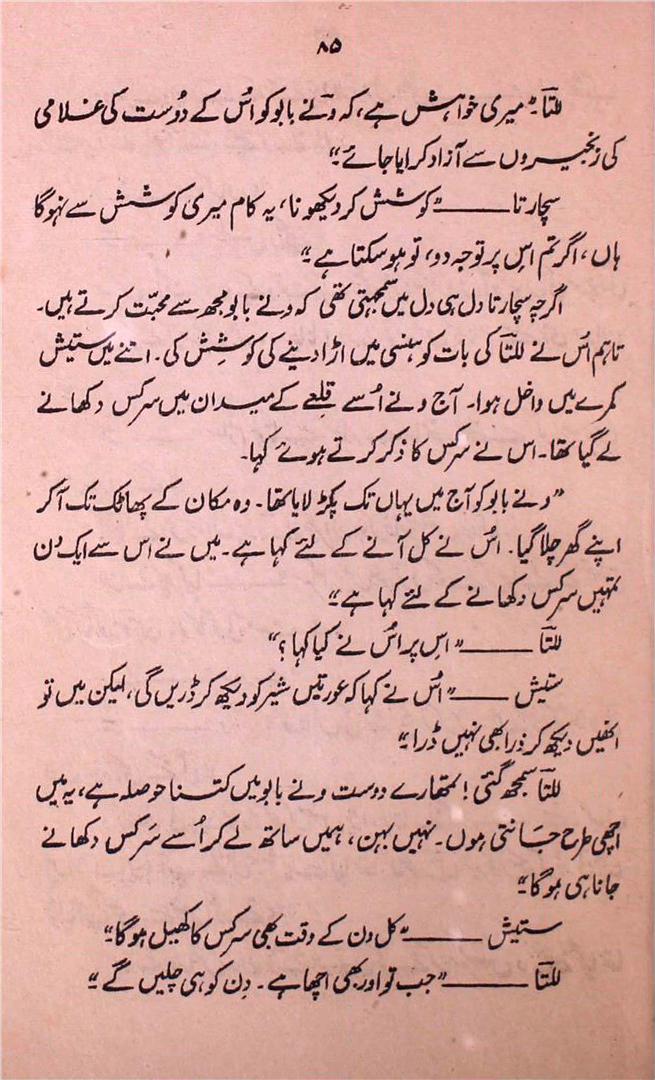 ۸۵
للتا۔ "میری خواہش ہے، کہ ونے بابو کو اُس کے دُوست کی غلامی
کی زنجیروں سے آزاد کرایا جائے"
سچارتا ـــــــ "کوشش کر دیکھو نا، یہ کام میری کوشش سے نہوگا
ہاں، اگر تم اس پر توجہ دو، تو ہو سکتا ہے۔"
اگرچہ سچارتا دل ہی دل میں سمجھتی تھی کہ ونے بابو مجھ سے محبّت کرتے ہیں۔
تاہم اُس نے للتا کی بات کو ہنسی میں اڑا دینے کی کوشِش کی۔ اتنے میں ستیش
کمرے میں داخل ہوا۔ آج ونے اُسے قلعے کے میدان میں سرکس دکھانے
لے گیا تھا۔ اس نے سرکس کا ذکر کرتے ہوئے کہا۔
"ونے بابو کو آج میں یہاں تک پکڑ لایا تھا۔ وہ مکان کے پھاٹک تک آکر
اپنے گھر چلا گیا۔ اُس نے کل آنے کے لئے کہا ہے۔ میں نے اس سے ایک دن
تمہیں سرکس دکھانے کے لئے کہا ہے۔"
للتا ـــــــ "اِس پر اُس نے کیا کہا؟"
ستیش ـــــــ "اُس نے کہا کہ عورتیں شیر کو دیکھ کر ڈریں گی، لیکن میں تو
انھیں دیکھ کر ذرا بھی نہیں ڈرا۔"
للتا سمجھ گئی! تمھارے دوست ونے بابو میں کتنا حوصلہ ہے، یہ میں
اچھی طرح جانتی ہوں۔ نہیں بہن، ہمیں ساتھ لے کر اُسے سرکس دکھانے
جانا ہی ہوگا۔"
ستیش ـــــــ "کل دن کے وقت بھی سرکس کا کھیل ہوگا۔"
للتا ـــــــ "جب تو اور بھی اچھا ہے۔ دِن کو ہی چلیں گے۔"